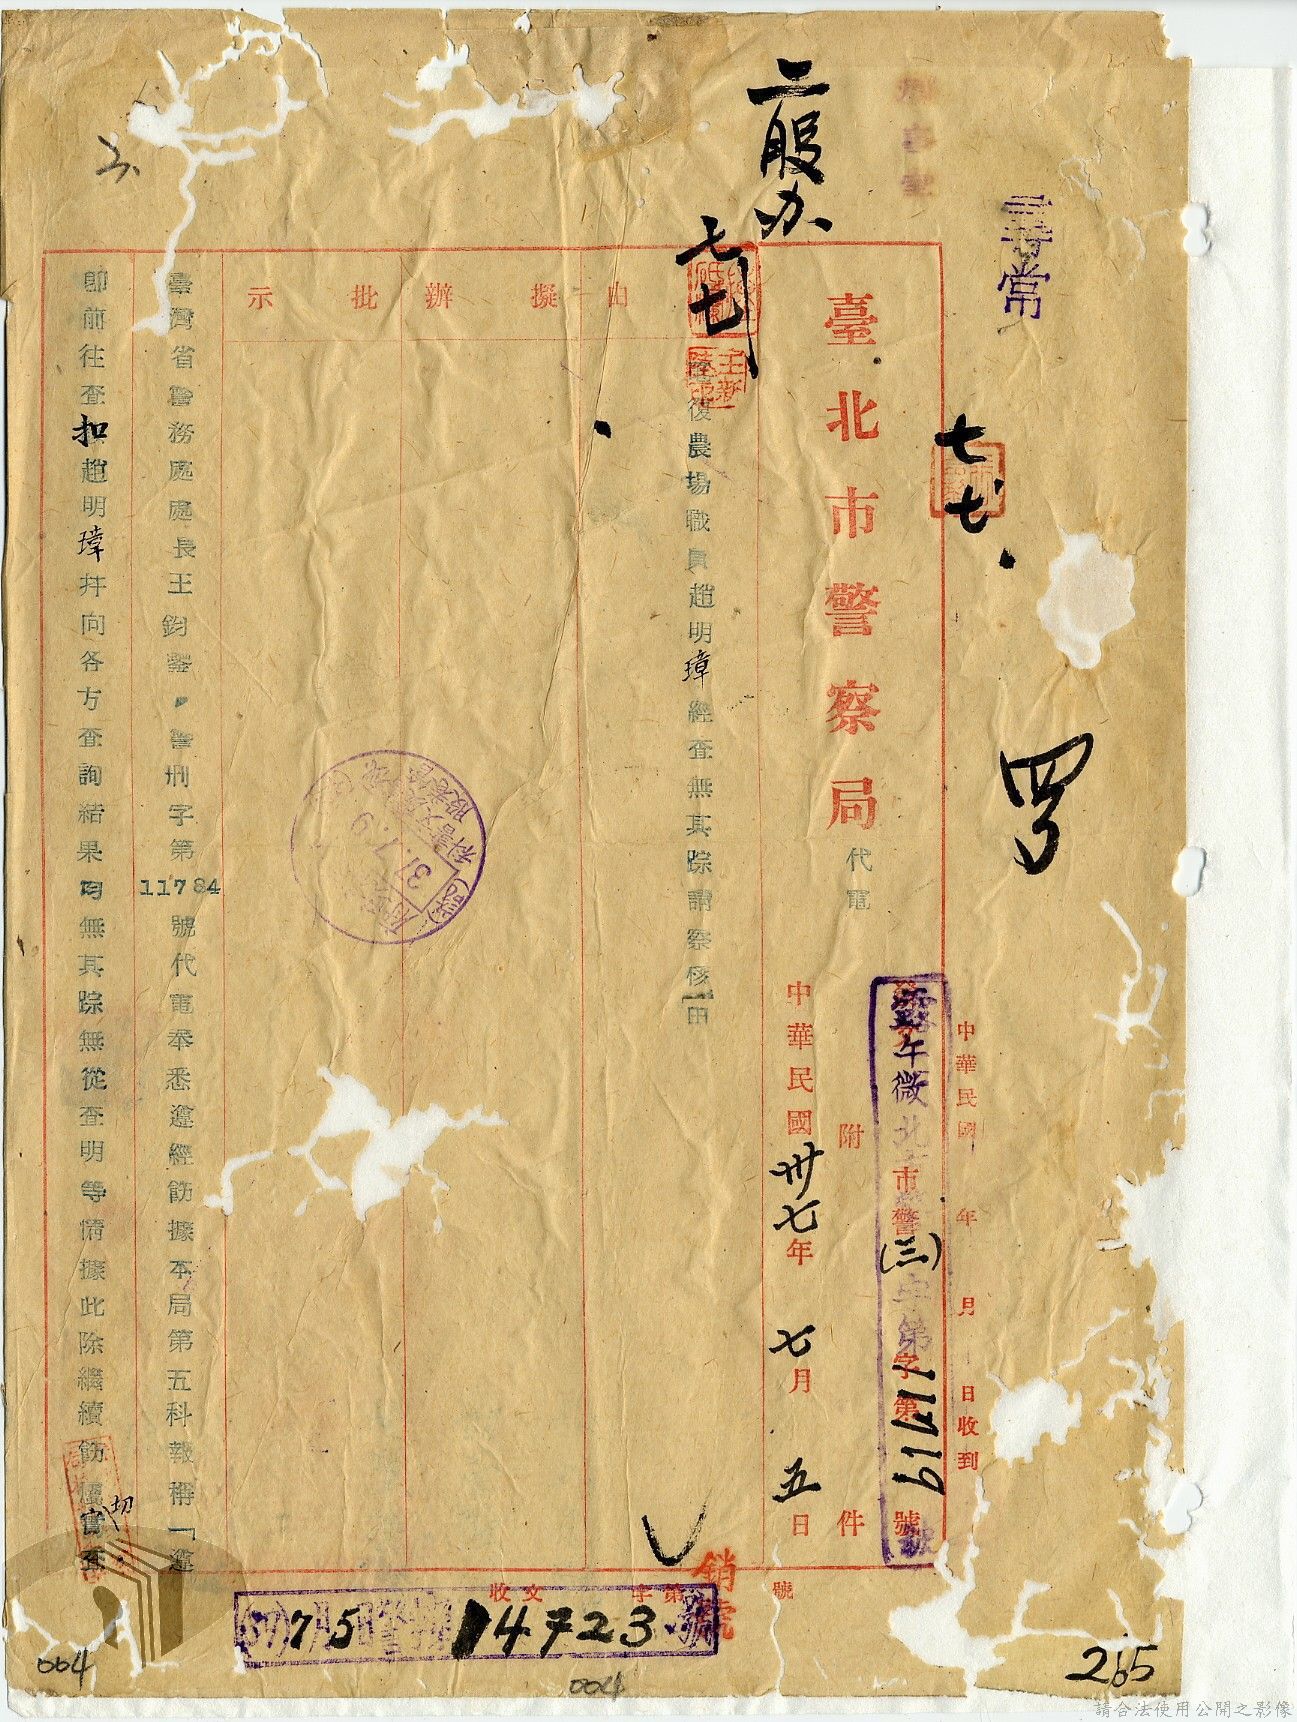 尋常
二股办
七七
七七
罗
中華民國 年 月 日收到
臺北市警察局代電
附 件
午微北市警(三)字第11719號
中華民國卅七年七月五日
由 擬辦 批示
復農場職員趙明璋經查無其踪請察核由
臺灣省警務處處長王鈞鑒警刑字第11784號代電奉悉遵經飭據本局第五科報稱「遵
即前往查扣趙明璋并向各方查詢結果均無其踪無從查明等情據此除繼續飭屬切實查
37.7.9
收文 字第 號
銷號
75
14723
004
004
265
請合法使用公開之影像